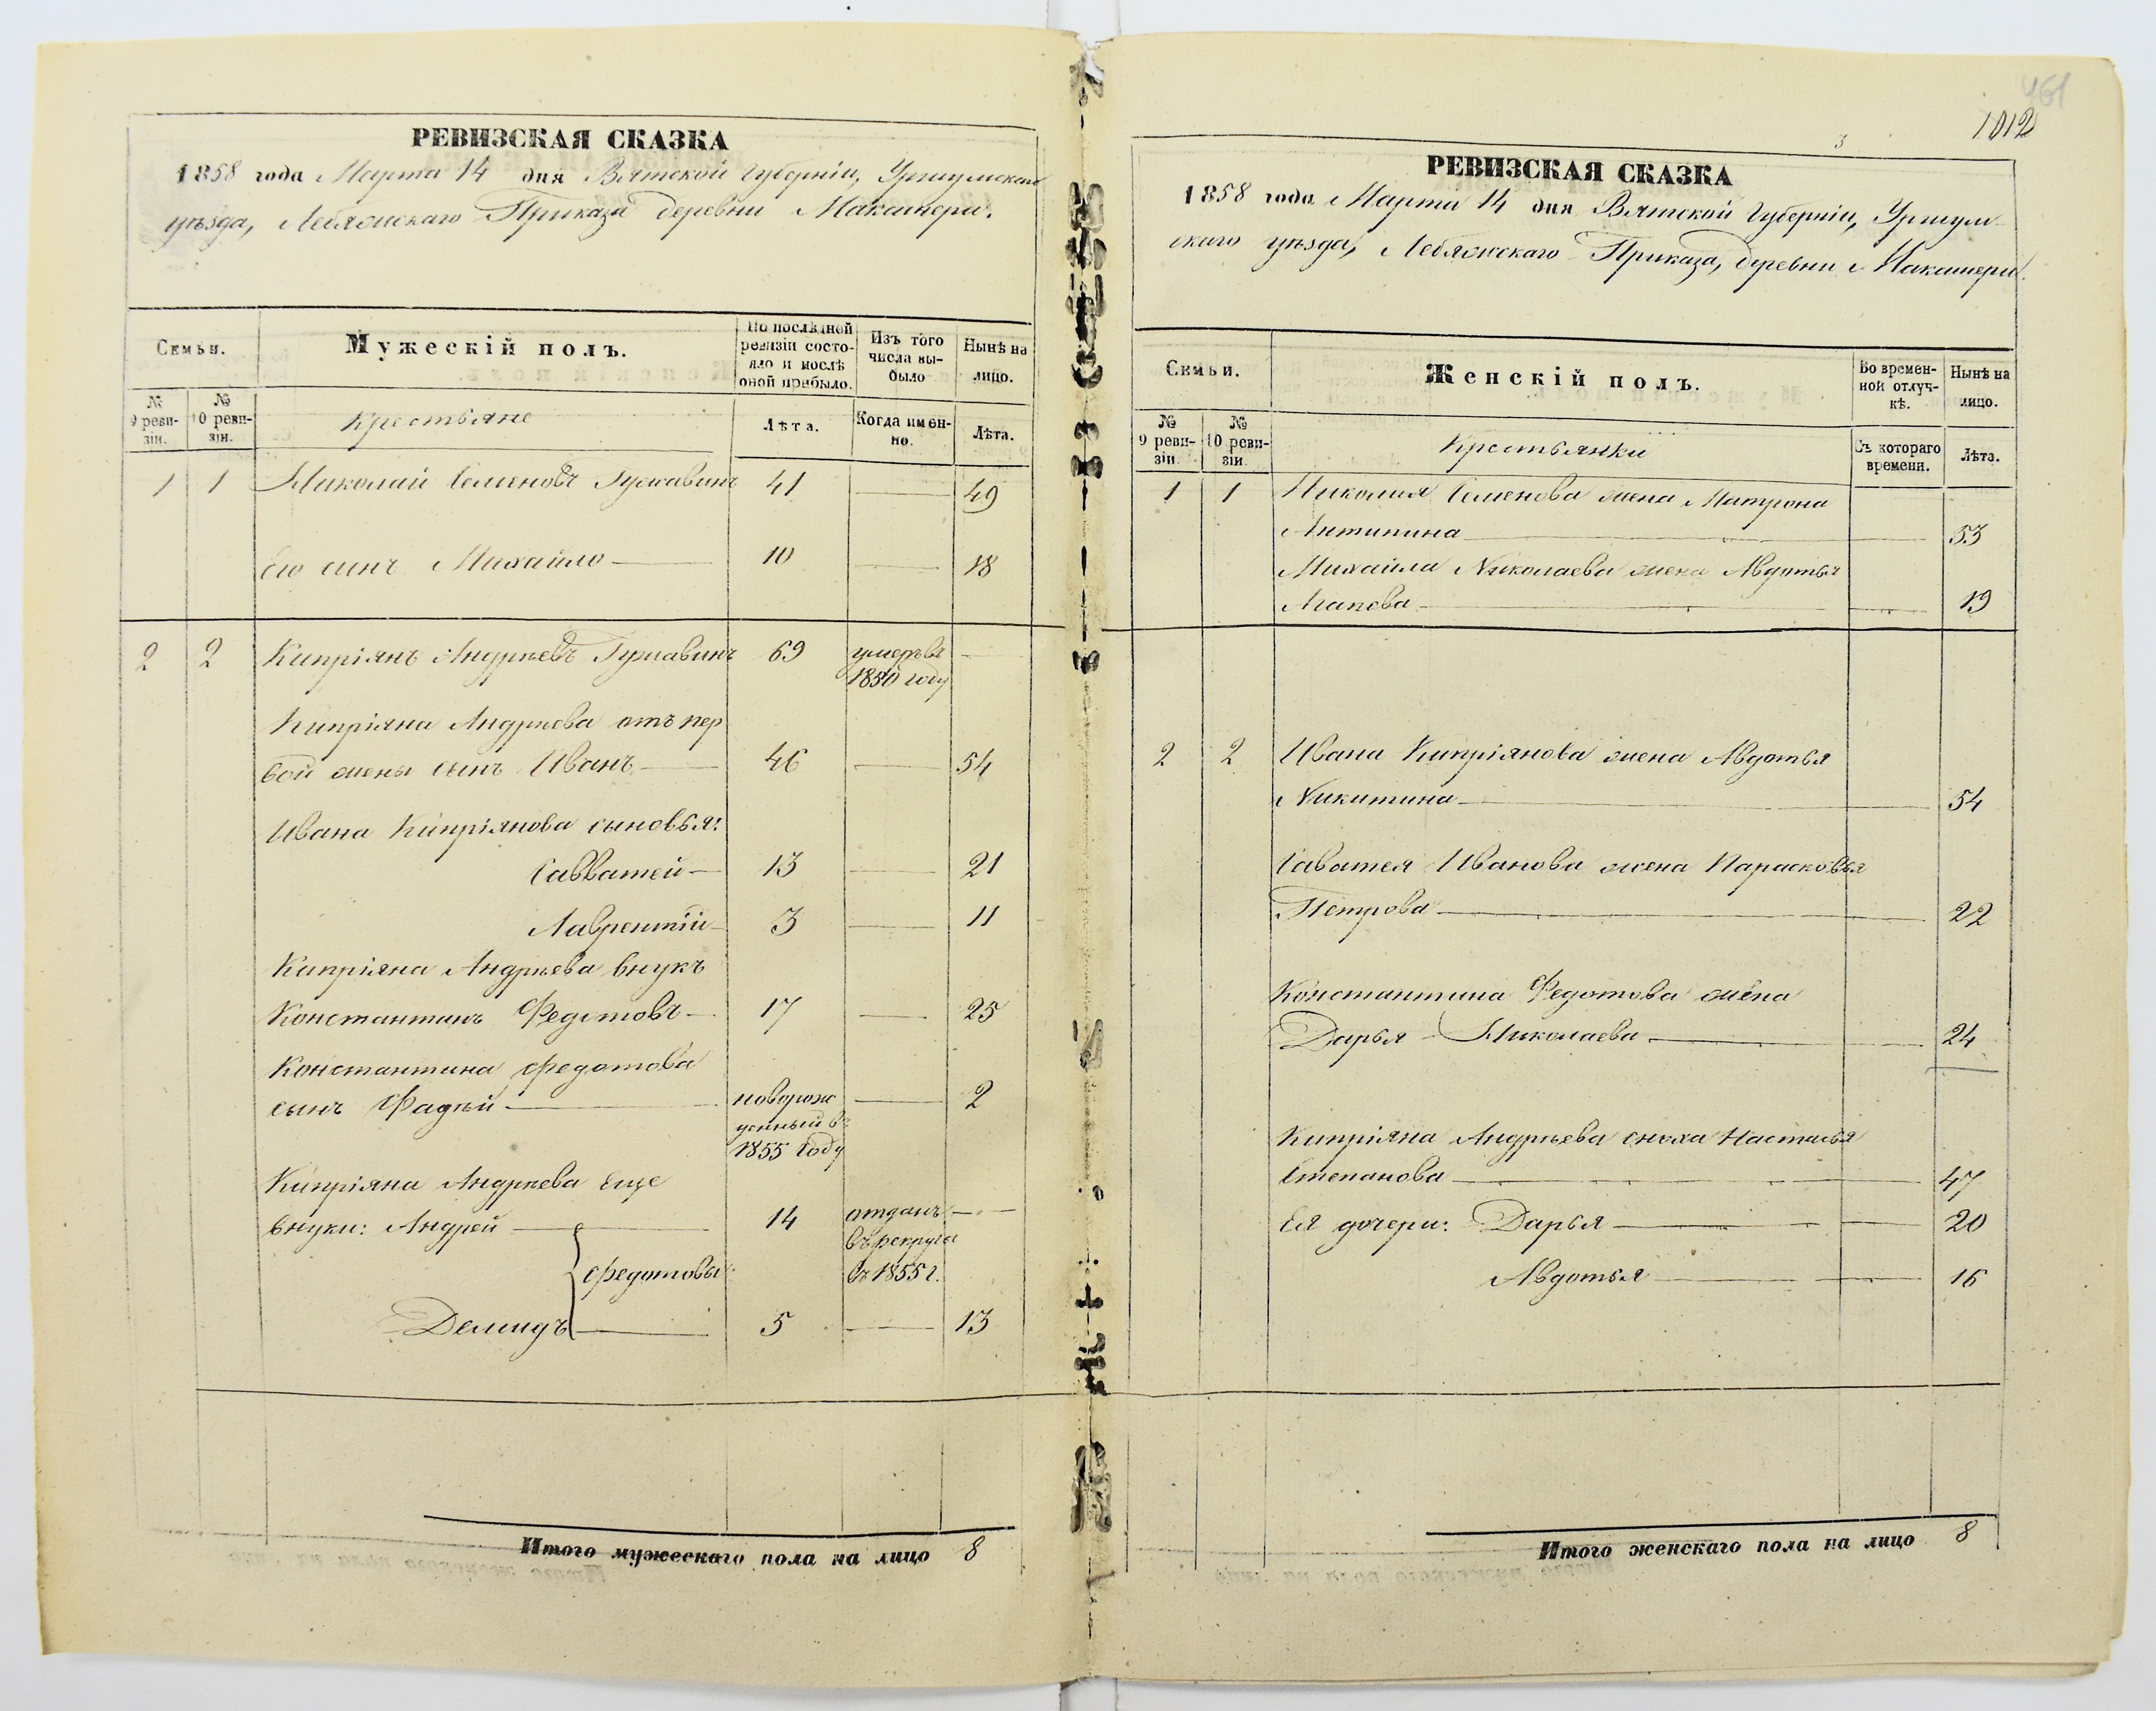 РЕВИЗСКАЯ СКАЗКА
1858 года Марта 14 дня Вятской Губерніи, Уржумскаго
уѣзда, Лебяжскаго Приказа деревни Макамери.
Семьи.
Мужескій полъ.
По послѣдней
ревизіи состо-
яло и послѣ
оной прибыло.
Изъ того
числа вы-
было
Нынѣ на
лицо.
№
9 реви-
зіи.
№
10 реви-
зіи.
Крестьяне
Лѣта.
Когда имен-
но.
Лѣта.
1 1 Николай Семеновъ Гужавинъ 41 49
Его сынъ Михайло 10 18
2 2 Кипріянъ Андрѣевъ Гужавинъ 69 умеръ въ
1850 году
Кипріяна Андрѣева отъ пер
вой жены сынъ Иванъ 46 54
Ивана Кипріянова сыновья:
Савватей 13 21
Лаврентій 3 11
Кипріяна Андрѣева внукъ
Константинъ Федотовъ 17 25
Константина Федотова
сынъ Фадѣй 2
новорож
денный въ
1855 году
Кипріяна Андрѣева еще
внуки: Андрей 14 отданъ
въ рекруты
въ 1855 г.
Федотовы
Демидъ 5 13
Итого мужескаго пола на лицо 8
461
1012
3
РЕВИЗСКАЯ СКАЗКА
1858 года Марта 14 дня Вятской Губерніи, Уржум
скаго уѣзда, Лебяжскаго Приказа, деревни Макамери.
Семьи.
Женскій полъ.
Во времен-
ной отлуч-
кѣ.
Нынѣ на
лицо.
№
9 реви-
зіи.
№
10 реви-
зіи.
Крестьянки
Съ котораго
времени.
Лѣта.
1 1 Николая Семенова жена Матрона
Антипина 53
Михайла Николаева жена Авдотья
Агапова 19
2 2 Ивана Кипріянова жена Авдотья
Никитина 54
Саватея Иванова жена Парасковья
Петрова 22
Константина Федотова жена
Дарья Николаева 24
Кипріяна Андрѣева сноха Настасья
Степанова 47
Ея дочери: Дарья 20
Авдотья 16
Итого женскаго пола на лицо 8